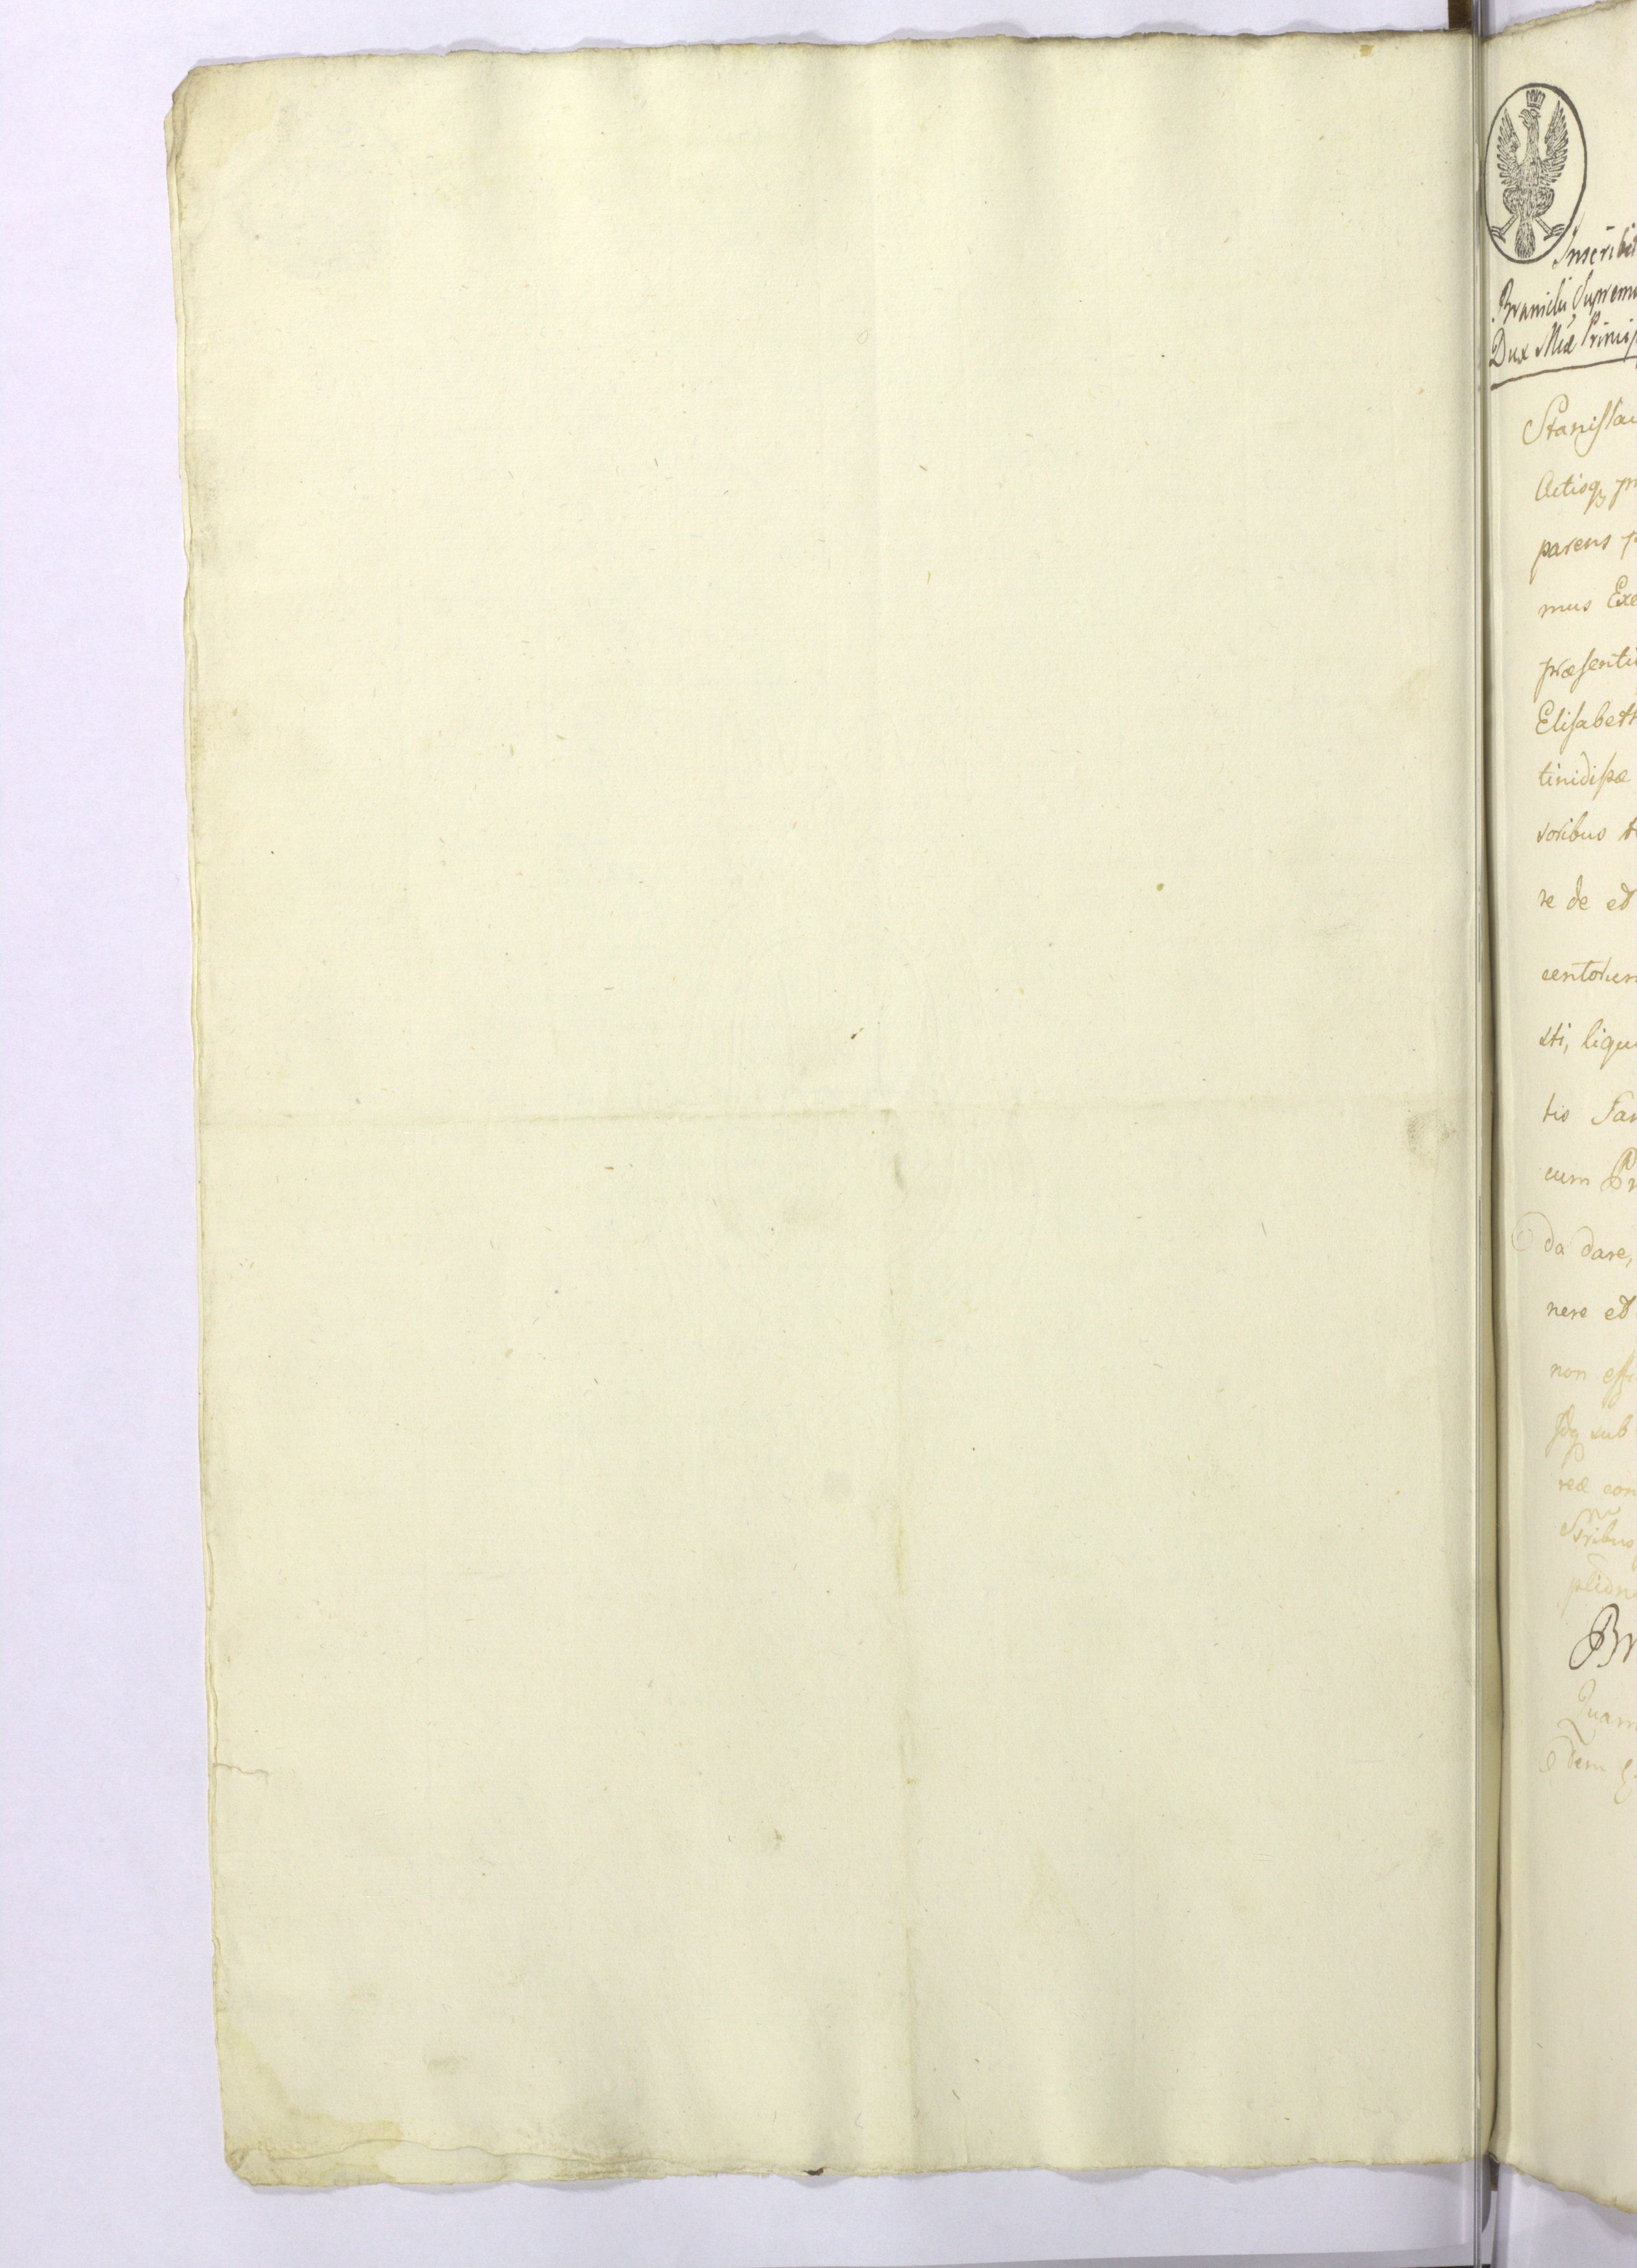 Inscribit
Branicki Suprem
Dux Mid Princip
Stanislau
Actisq, pr
parens p
mus Exe
præsenti
Elisabeth
tinidissæ
soribus
re de et
centorum
sti, liqui
tis San
cum Pr
da dare,
nere et
non effi
sub
reæ con
Br
Quam
dem